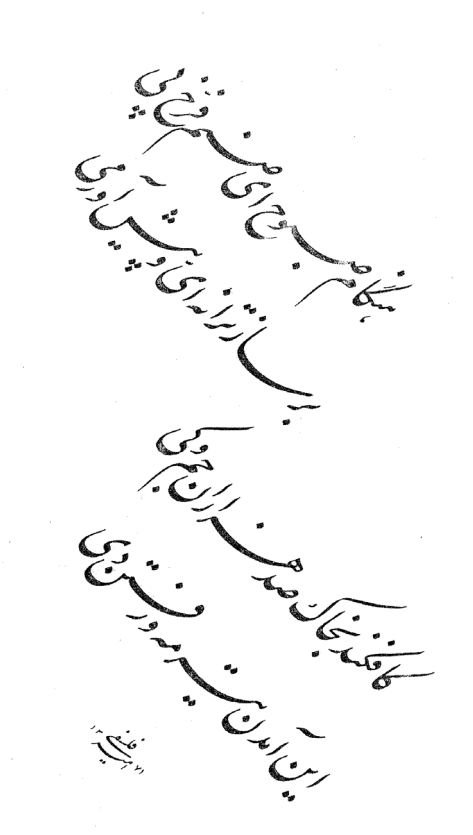 هنگام صبوح ای صنم فرخ پی
برساز ترانه‌ای و پیش آور می
کافکند بخاک صد هزاران جم و کی
این آمدن تیر مه و رفتن دی
امیر فلسفی